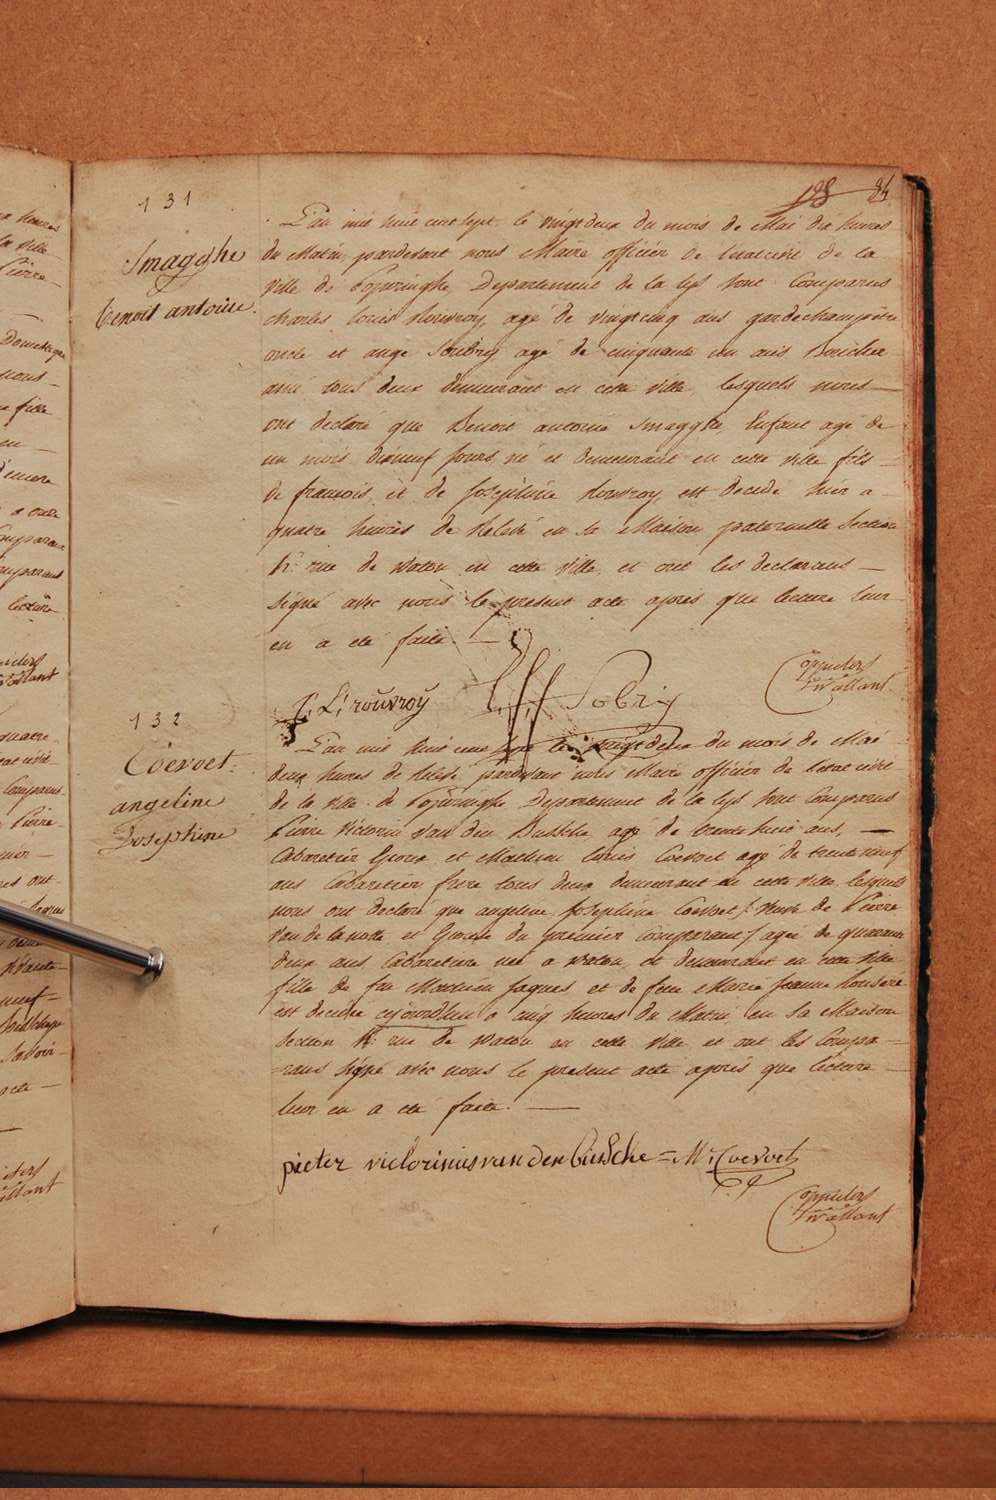 128 84
131
Smagghe
benoit antoine.
L'an mil huit cent sept le vingt deux du mois de Mai dix heures
du Matin, pardevant nous Maire officier de l'etat civil de la
ville de Poperinghe, Departement de la Lys sont Comparus
charles Louis Rouvroy, agé de vingt cinq ans garde champetre
oncle et ange Sobry agé de cinquante un ans Boucher
ami tous deux demeurant en cette ville, lesquels nous
ont declaré que Benoit antoine Smagghe, Enfant agé de
un mois dixneuf jours, né et demeurant en cette ville fils
de francois, et de Josephine Rouvroy, est decedé hier a
quatre heures de Relevé en sa Maison paternelle Section
K: rue de Watou en cette ville, et ont les declarans
signé avec nous le present acte après que lecture leur
en a été faite.
C: L: rouvroÿ Sobrÿ
132
Coevoet.
angeline
Josephine
L'an mil huit cent sept le vingt deux du mois de Mai
deux heures de relevé, pardevant nous Maire officier de l'etat civil
de la ville de Poperinghe Departement de la Lys sont Comparus
Pierre Victorin Van den Bussche agé de trente huit ans,
Cabaretier Epoux et Mathieu Louis Coevoet agé de trente neuf
ans Cabaretier frere tous deux demeurant en cette ville, lesquels
nous ont declaré que angeline Josephine Coevoet /: Veuve de Pierre
Van de la notte et Epouse du premier Comparant :/ agée de quarante
deux ans Cabaretiere née a Watou, et demeurant en cette ville
fille de feu Mathieu Jaques et de feue Marie Jeanne
est decedée cejourdhui a cinq heures du Matin, en sa Maison
Section K: rue de Watou en cette ville et ont les Compa=
=rans signé avec nous le present acte après que lecture
leur en a été faite.
pieter victorinus van den bussche = M: L: Coevoet